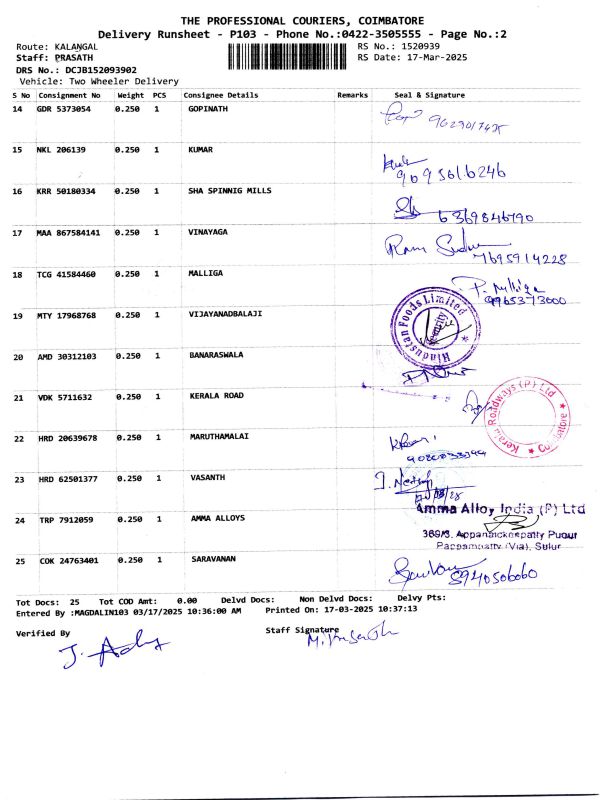 THE PROFESSIONAL COURIERS, COIMBATORE
Delivery Runsheet - P103 - Phone No.:0422-3505555 - Page No.:2
Route: KALANGAL
RS No.: 1520939
Staff: PRASATH
RS Date: 17-Mar-2025
DRS No.: DCJB152093902
Vehicle: Two Wheeler Delivery
S No Consignment No Weight PCS Consignee Details Remarks Seal & Signature
14 GDR 5373054 0.250 1 GOPINATH
15 NKL 206139 0.250 1 KUMAR
9095616246
16 KRR 50180334 0.250 1 SHA SPINNIG MILLS
6369846790
17 MAA 867584141 0.250 1 VINAYAGA
7695914228
18 TCG 41584460 0.250 1 MALLIGA
P. Malliga
9965373000
19 MTY 17968768 0.250 1 VIJAYANADBALAJI
Hindustan Foods Limited
Security
20 AMD 30312103 0.250 1 BANARASWALA
21 VDK 5711632 0.250 1 KERALA ROAD
Kerala Roadways (P) Ltd
Coimbatore
22 HRD 20639678 0.250 1 MARUTHAMALAI
23 HRD 62501377 0.250 1 VASANTH
24 TRP 7912059 0.250 1 AMMA ALLOYS
Amma Alloy India (P) Ltd
369/3, Appanaickenpatty Pudur
Pappampatty (Via), Sulur
25 COK 24763401 0.250 1 SARAVANAN
8940506060
Tot Docs: 25 Tot COD Amt: 0.00 Delvd Docs: Non Delvd Docs: Delvy Pts:
Entered By :MAGDALIN103 03/17/2025 10:36:00 AM Printed On: 17-03-2025 10:37:13
Verified By
Staff Signature